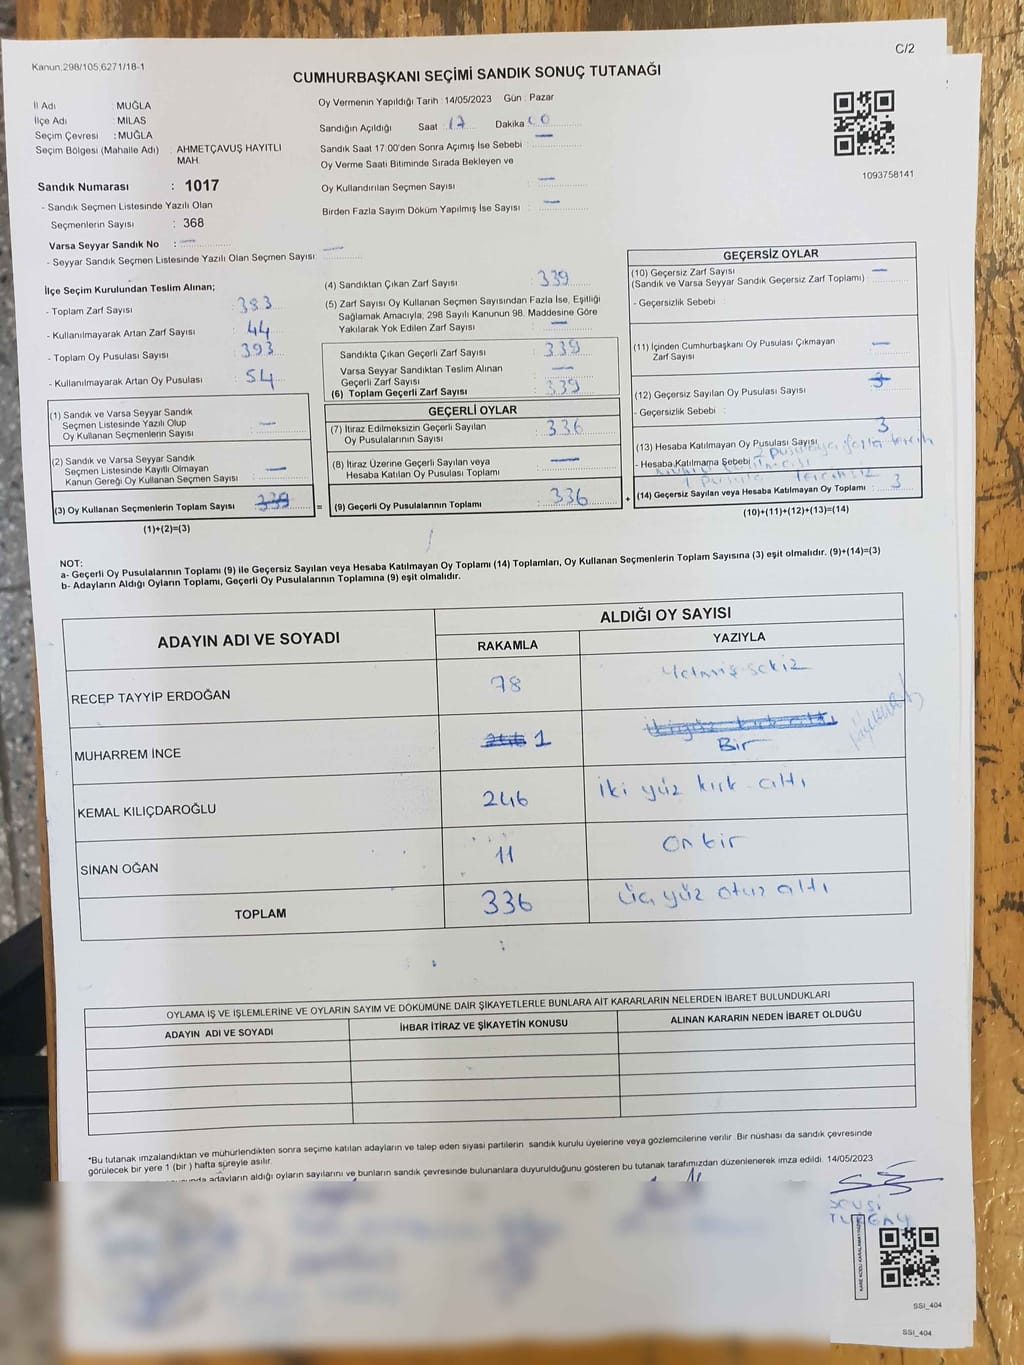 C/2
Kanun.298/105,6271/18-1
CUMHURBAŞKANI SEÇİMİ SANDIK SONUÇ TUTANAĞI
İl Adı : MUĞLA
İlçe Adı : MİLAS
Seçim Çevresi : MUĞLA
Seçim Bölgesi (Mahalle Adı) : AHMETÇAVUŞ HAYITLI
MAH.
Sandık Numarası : 1017
- Sandık Seçmen Listesinde Yazılı Olan
Seçmenlerin Sayısı : 368
Varsa Seyyar Sandık No : —
- Seyyar Sandık Seçmen Listesinde Yazılı Olan Seçmen Sayısı: —
Oy Vermenin Yapıldığı Tarih : 14/05/2023 Gün : Pazar
Sandığın Açıldığı Saat : 17 Dakika 00
Sandık Saat 17:00'den Sonra Açımış İse Sebebi : —
Oy Verme Saati Bitiminde Sırada Bekleyen ve
Oy Kullandırılan Seçmen Sayısı : —
Birden Fazla Sayım Döküm Yapılmış İse Sayısı : —
1093758141
İlçe Seçim Kurulundan Teslim Alınan;
- Toplam Zarf Sayısı : 383
- Kullanılmayarak Artan Zarf Sayısı : 44
- Toplam Oy Pusulası Sayısı : 393
- Kullanılmayarak Artan Oy Pusulası : 54
(1) Sandık ve Varsa Seyyar Sandık
Seçmen Listesinde Yazılı Olup
Oy Kullanan Seçmenlerin Sayısı : —
(2) Sandık ve Varsa Seyyar Sandık
Seçmen Listesinde Kayıtlı Olmayan
Kanun Gereği Oy Kullanan Seçmen Sayısı : —
(3) Oy Kullanan Seçmenlerin Toplam Sayısı : 339
(1)+(2)=(3)
(4) Sandıktan Çıkan Zarf Sayısı : 339
(5) Zarf Sayısı Oy Kullanan Seçmen Sayısından Fazla İse, Eşitliği
Sağlamak Amacıyla, 298 Sayılı Kanunun 98. Maddesine Göre
Yakılarak Yok Edilen Zarf Sayısı : —
Sandıkta Çıkan Geçerli Zarf Sayısı : 339
Varsa Seyyar Sandıktan Teslim Alınan
Geçerli Zarf Sayısı : —
(6) Toplam Geçerli Zarf Sayısı : 339
GEÇERLİ OYLAR
(7) İtiraz Edilmeksizin Geçerli Sayılan
Oy Pusulalarının Sayısı : 336
(8) İtiraz Üzerine Geçerli Sayılan veya
Hesaba Katılan Oy Pusulası Toplamı : —
= (9) Geçerli Oy Pusulalarının Toplamı : 336 +
GEÇERSİZ OYLAR
(10) Geçersiz Zarf Sayısı
(Sandık ve Varsa Seyyar Sandık Geçersiz Zarf Toplamı) : —
- Geçersizlik Sebebi :
(11) İçinden Cumhurbaşkanı Oy Pusulası Çıkmayan
Zarf Sayısı : —
(12) Geçersiz Sayılan Oy Pusulası Sayısı : 3
- Geçersizlik Sebebi :
(13) Hesaba Katılmayan Oy Pusulası Sayısı 3
- Hesaba Katılmama Sebebi 2 pusulaya fazla tercih
1 pusula tercihsiz
(14) Geçersiz Sayılan veya Hesaba Katılmayan Oy Toplamı : 3
(10)+(11)+(12)+(13)=(14)
NOT:
a- Geçerli Oy Pusulalarının Toplamı (9) ile Geçersiz Sayılan veya Hesaba Katılmayan Oy Toplamı (14) Toplamları, Oy Kullanan Seçmenlerin Toplam Sayısına (3) eşit olmalıdır. (9)+(14)=(3)
b- Adayların Aldığı Oyların Toplamı, Geçerli Oy Pusulalarının Toplamına (9) eşit olmalıdır.
ADAYIN ADI VE SOYADI
ALDIĞI OY SAYISI
RAKAMLA YAZIYLA
RECEP TAYYİP ERDOĞAN 78 Yetmiş sekiz
MUHARREM İNCE 246 1 iki yüz kırk altı
Bir
KEMAL KILIÇDAROĞLU 246 iki yüz kırk altı
SİNAN OĞAN 11 On bir
TOPLAM 336 üç yüz otuz altı
OYLAMA İŞ VE İŞLEMLERİNE VE OYLARIN SAYIM VE DÖKÜMÜNE DAİR ŞİKAYETLERLE BUNLARA AİT KARARLARIN NELERDEN İBARET BULUNDUKLARI
ADAYIN ADI VE SOYADI İHBAR İTİRAZ VE ŞİKAYETİN KONUSU ALINAN KARARIN NEDEN İBARET OLDUĞU
*Bu tutanak imzalandıktan ve mühürlendikten sonra seçime katılan adayların ve talep eden siyasi partilerin sandık kurulu üyelerine veya gözlemcilerine verilir. Bir nüshası da sandık çevresinde
görülecek bir yere 1 (bir) hafta süreyle asılır.
adayların aldığı oyların sayılarını ve bunların sandık çevresinde bulunanlara duyurulduğunu gösteren bu tutanak tarafımızdan düzenlenerek imza edildi. 14/05/2023
SSI_404
SSI_404